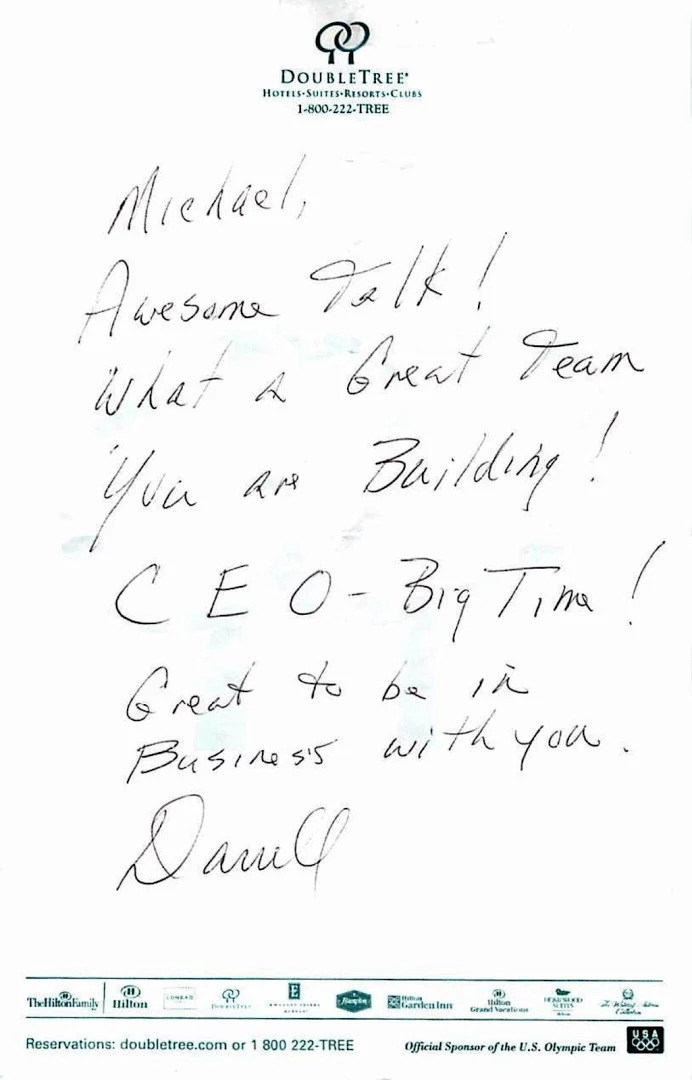 DOUBLETREE®
HOTELS•SUITES•RESORTS•CLUBS
1-800-222-TREE
Michael,
Awesome Talk!
What a Great Team
You are Building!
CEO - Big Time!
Great to be in
Business with you.
Darrell
TheHiltonFamily Hilton CONRAD DOUBLETREE EMBASSY SUITES HOTELS Hampton Hilton Garden Inn Hilton Grand Vacations HOMEWOOD SUITES Hilton
Reservations: doubletree.com or 1 800 222-TREE Official Sponsor of the U.S. Olympic Team USA